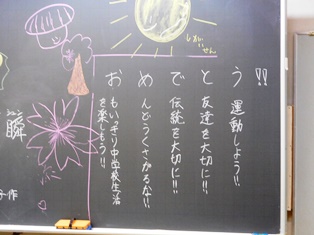 お もいっきり中学校生活
を楽しもう!!
め んどうくさがるな!!
で 伝統を大切に!!
と 友達を大切に!!
う 運動しよう!!
!!
瞬
作